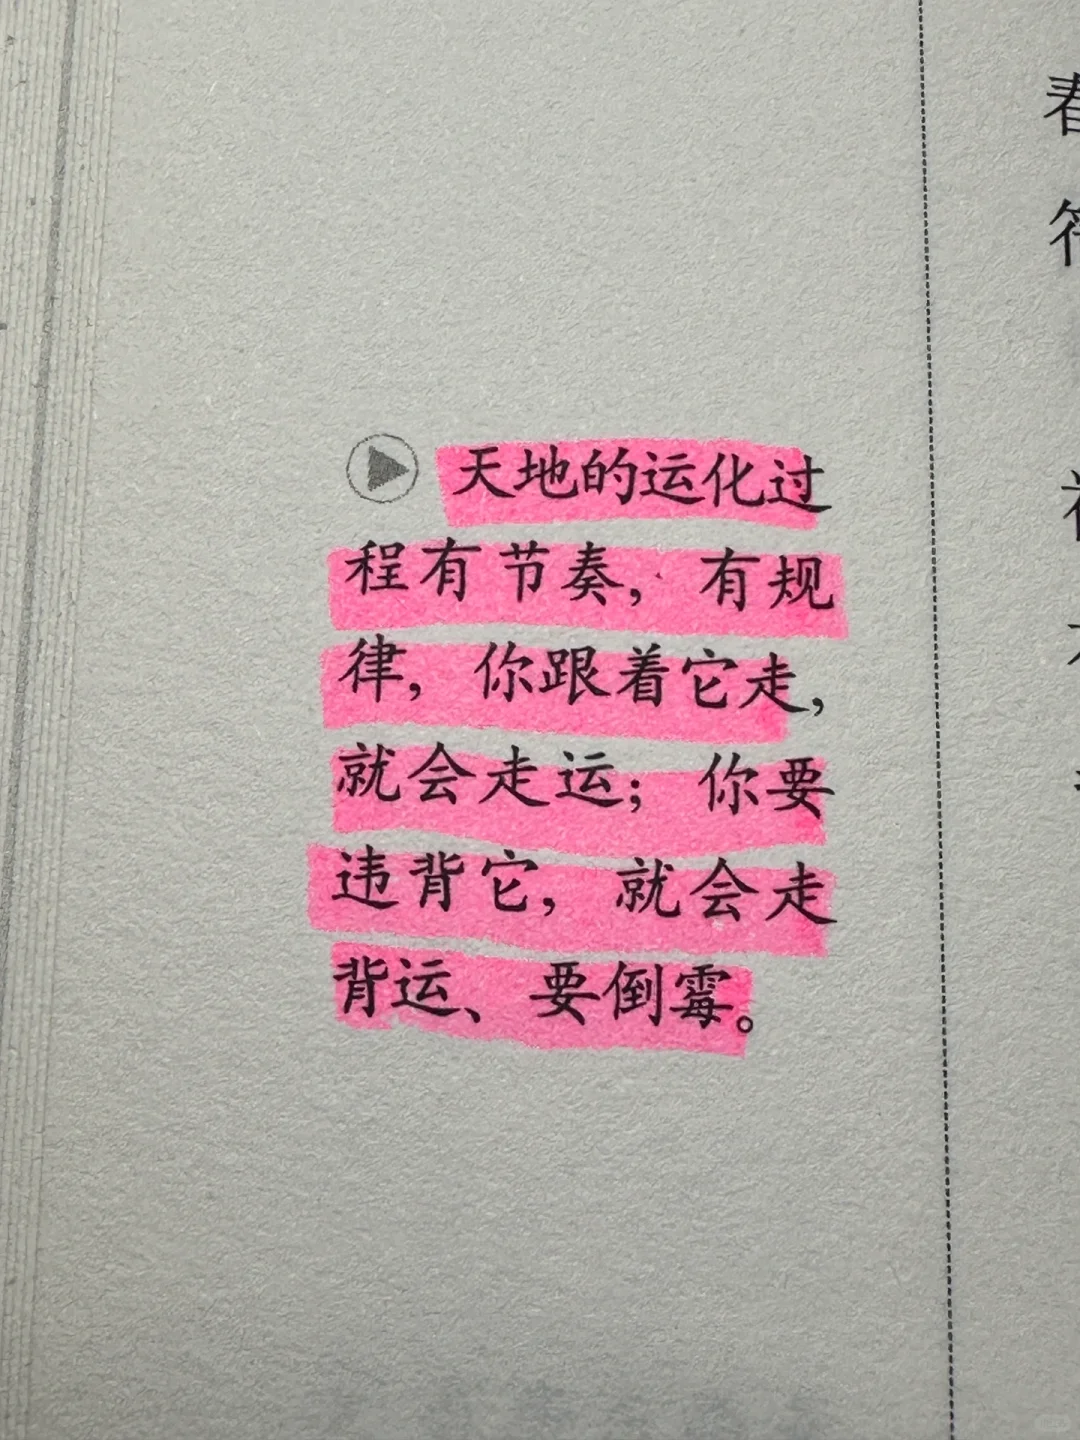 天地的运化过
程有节奏，有规
律，你跟着它走，
就会走运；你要
违背它，就会走
背运、要倒霉。
春
符